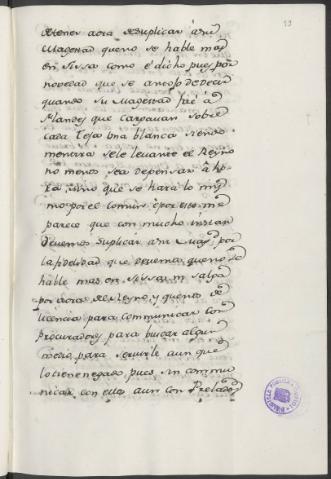 13
detener aora de suplicar á su
Magestad que no se hable mas
en sissa como é dicho pues por
novedad que se antojo de decir
quando su Magestad fué á
Flandes que cargauan sobre
cada teja una blanca siendo
mentira se le leuanto el Reyno
no menos sea de pensar â ho-
ra sino que se hara lo mis
mo por el comun é por esto me
parece que con mucho instan
deuemos suplicar a su Mag. por
la fidelidad que deuemos que no se
hable mas en sissas ni salga
por aora del Reyno, y que nos de
licencia para communicar con
Procuradores para buscar algun
medio para servirle aunque
lo tiene negado pues sin commu
nicar con ellos aun con Prelados